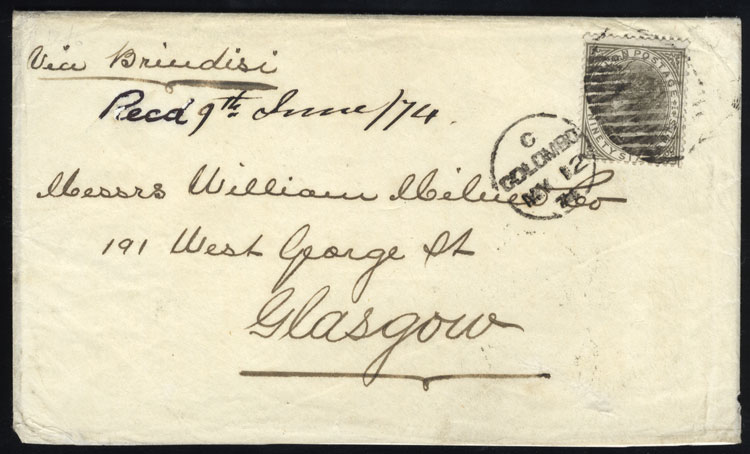 Via Brindisi
Recd 9th June/74.
CEYLON POSTAGE
NINETY SIX
C
COLOMBO
MY 12
74
Messrs William Milne & Co
191 West George St
Glasgow